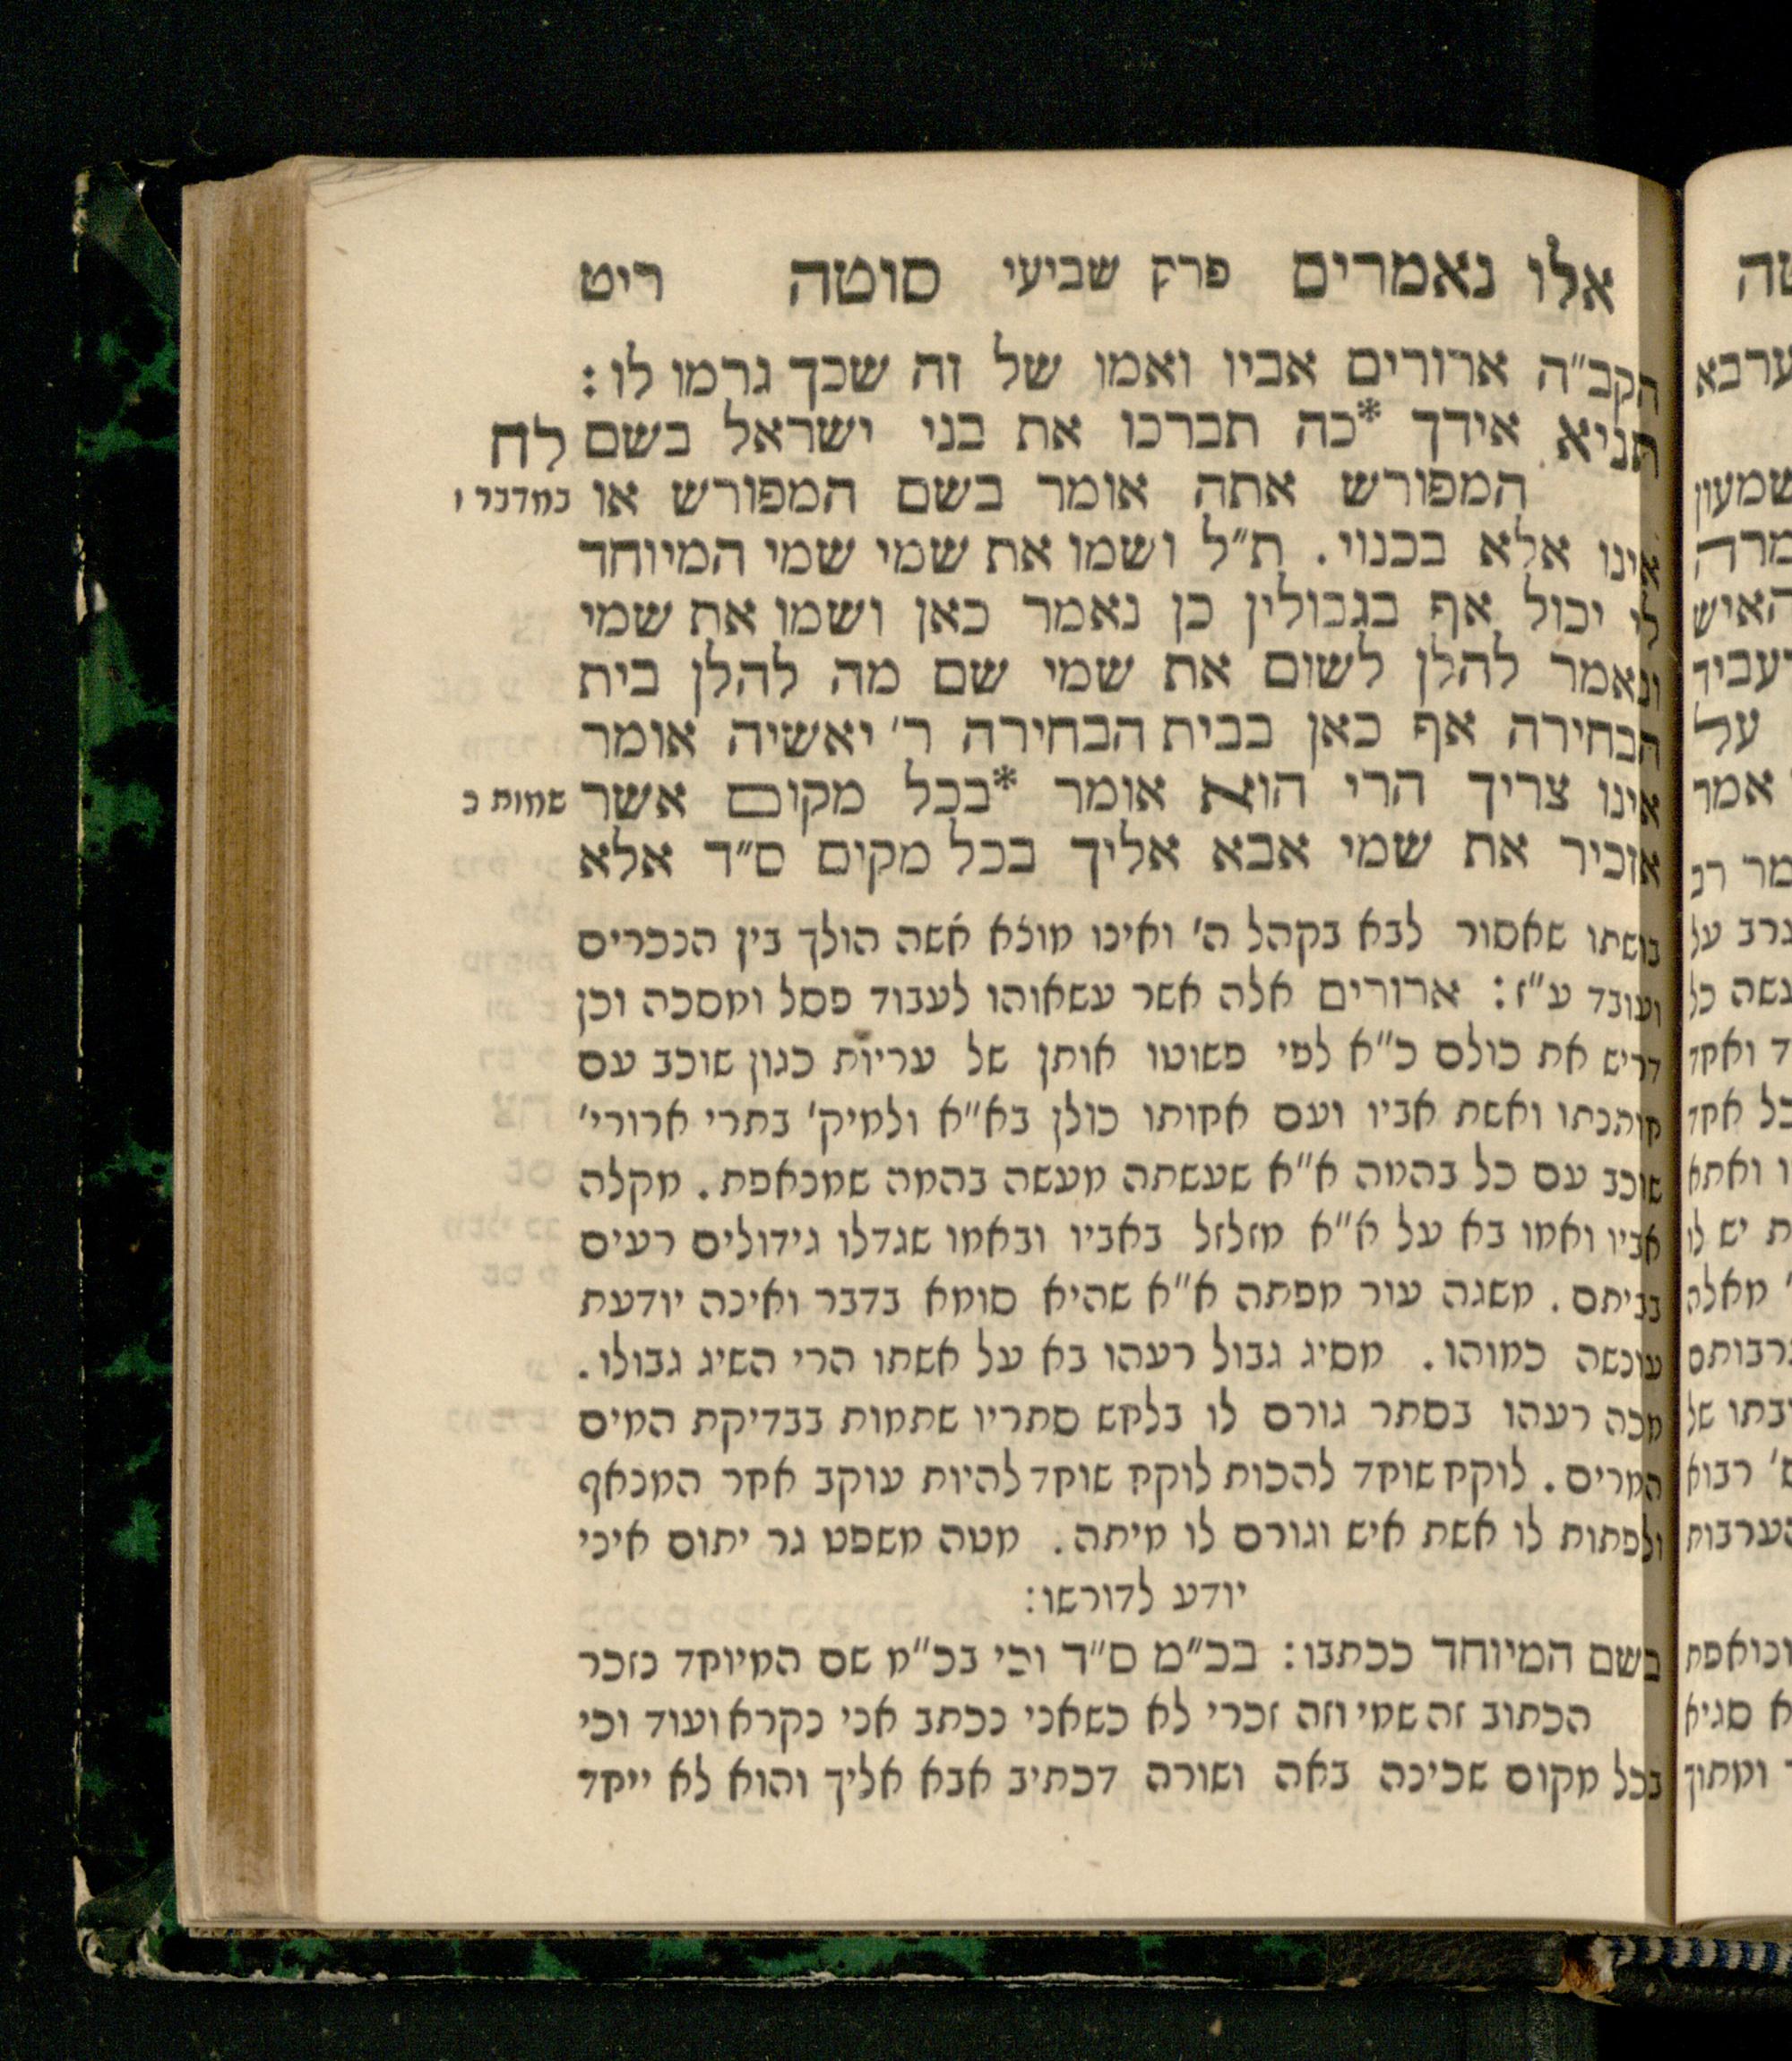 אלו נאמרים פרק שביעי סוטה ריט
הקב"ה ארורים אביו ואמו של זה שכך גרמו לו:
תניא אידך *כה תברכו את בני ישראל בשם לח
המפורש אתה אומר בשם המפורש או במדבר ו
אינו אלא בכנוי. ת"ל ושמו את שמי שמי המיוחד
לי יכול אף בגבולין כן נאמר כאן ושמו את שמי
ונאמר להלן לשום את שמי שם מה להלן בית
הבחירה אף כאן בבית הבחירה ר' יאשיה אומר
אינו צריך הרי הוא אומר *בכל מקום אשר שמות כ
אזכיר את שמי אבא אליך בכל מקום ס"ד אלא
בושתו שאסור לבא בקהל ה' ואינו מוצא אשה הולך בין הנכרים
ועובד ע"ז: ארורים אלה אשר עשאוהו לעבוד פסל ומסכה וכן
דריש את כולם כ"א לפי פשוטו אותן של עריות כגון שוכב עם
חותנתו ואשת אביו ועם אחותו כולן בא"א ולמיק' בתרי ארורי'
שוכב עם כל בהמה א"א שעשתה מעשה בהמה שמנאפת. מקלה
אביו ואמו בא על א"א מזלזל באביו ובאמו שגדלו גידולים רעים
בביתם. משגה עור מפתה א"א שהיא סומא בדבר ואינה יודעת
עונשה כמוהו. מסיג גבול רעהו בא על אשתו הרי השיג גבולו.
מכה רעהו בסתר גורם לו בלחש סתריו שתמות בבדיקת המים
המרים. לוקח שוחד להכות לוקח שוחד להיות עוקב אחר המנאף
ולפתות לו אשת איש וגורם לו מיתה. מטה משפט גר יתום איני
יודע לדורשו:
בשם המיוחד ככתבו: בכ"מ ס"ד וכי בכ"מ שם המיוחד נזכר
הכתוב זה שמי וזה זכרי לא כשאני נכתב אני נקרא ועוד וכי
בכל מקום שכינה באה ושורה דכתיב אבא אליך והוא לא ייחד